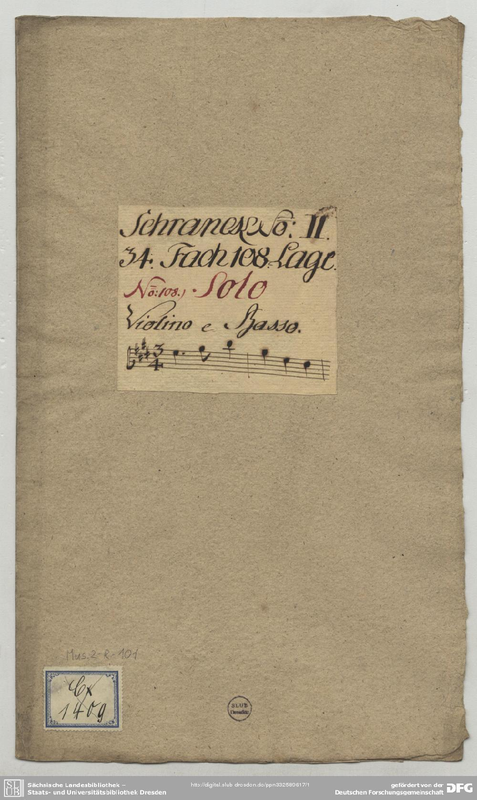 Schranck No: II.
34. Fach 108. Lage.
No: 108.) Solo
Violino e Basso.
3
4
Mus. 2-R-
Cx
1409
SLUB
Dresden
Sächsische Landesbibliothek –
Staats- und Universitätsbibliothek Dresden
gefördert von der
Deutschen Forschungsgemeinschaft
DFG